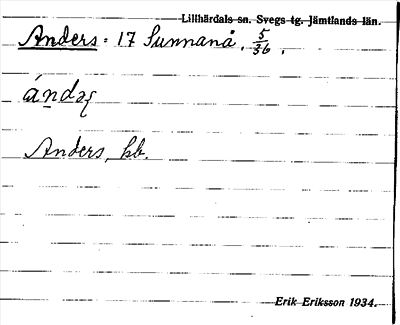 Lillhärdals sn. Svegs tg. Jämtlands län.
Anders: 17 Sunnanå, 5/36,
Anders, kb.
Erik Eriksson 1934.